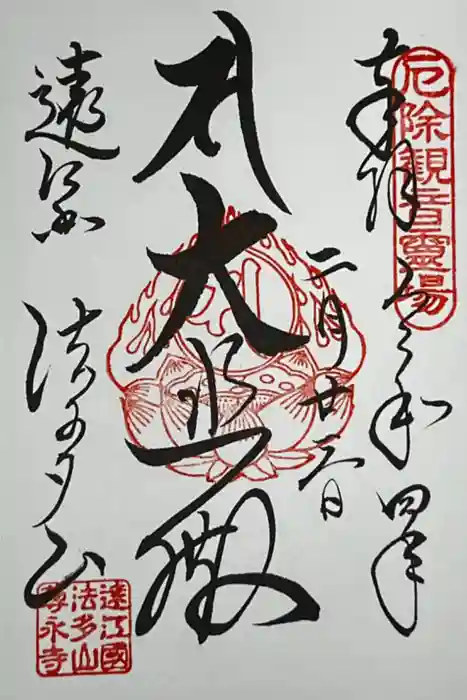 厄除観音靈場
奉拝 令和四年
二月廿六日
大悲殿
遠江
法多山
遠江國
法多山
尊永寺